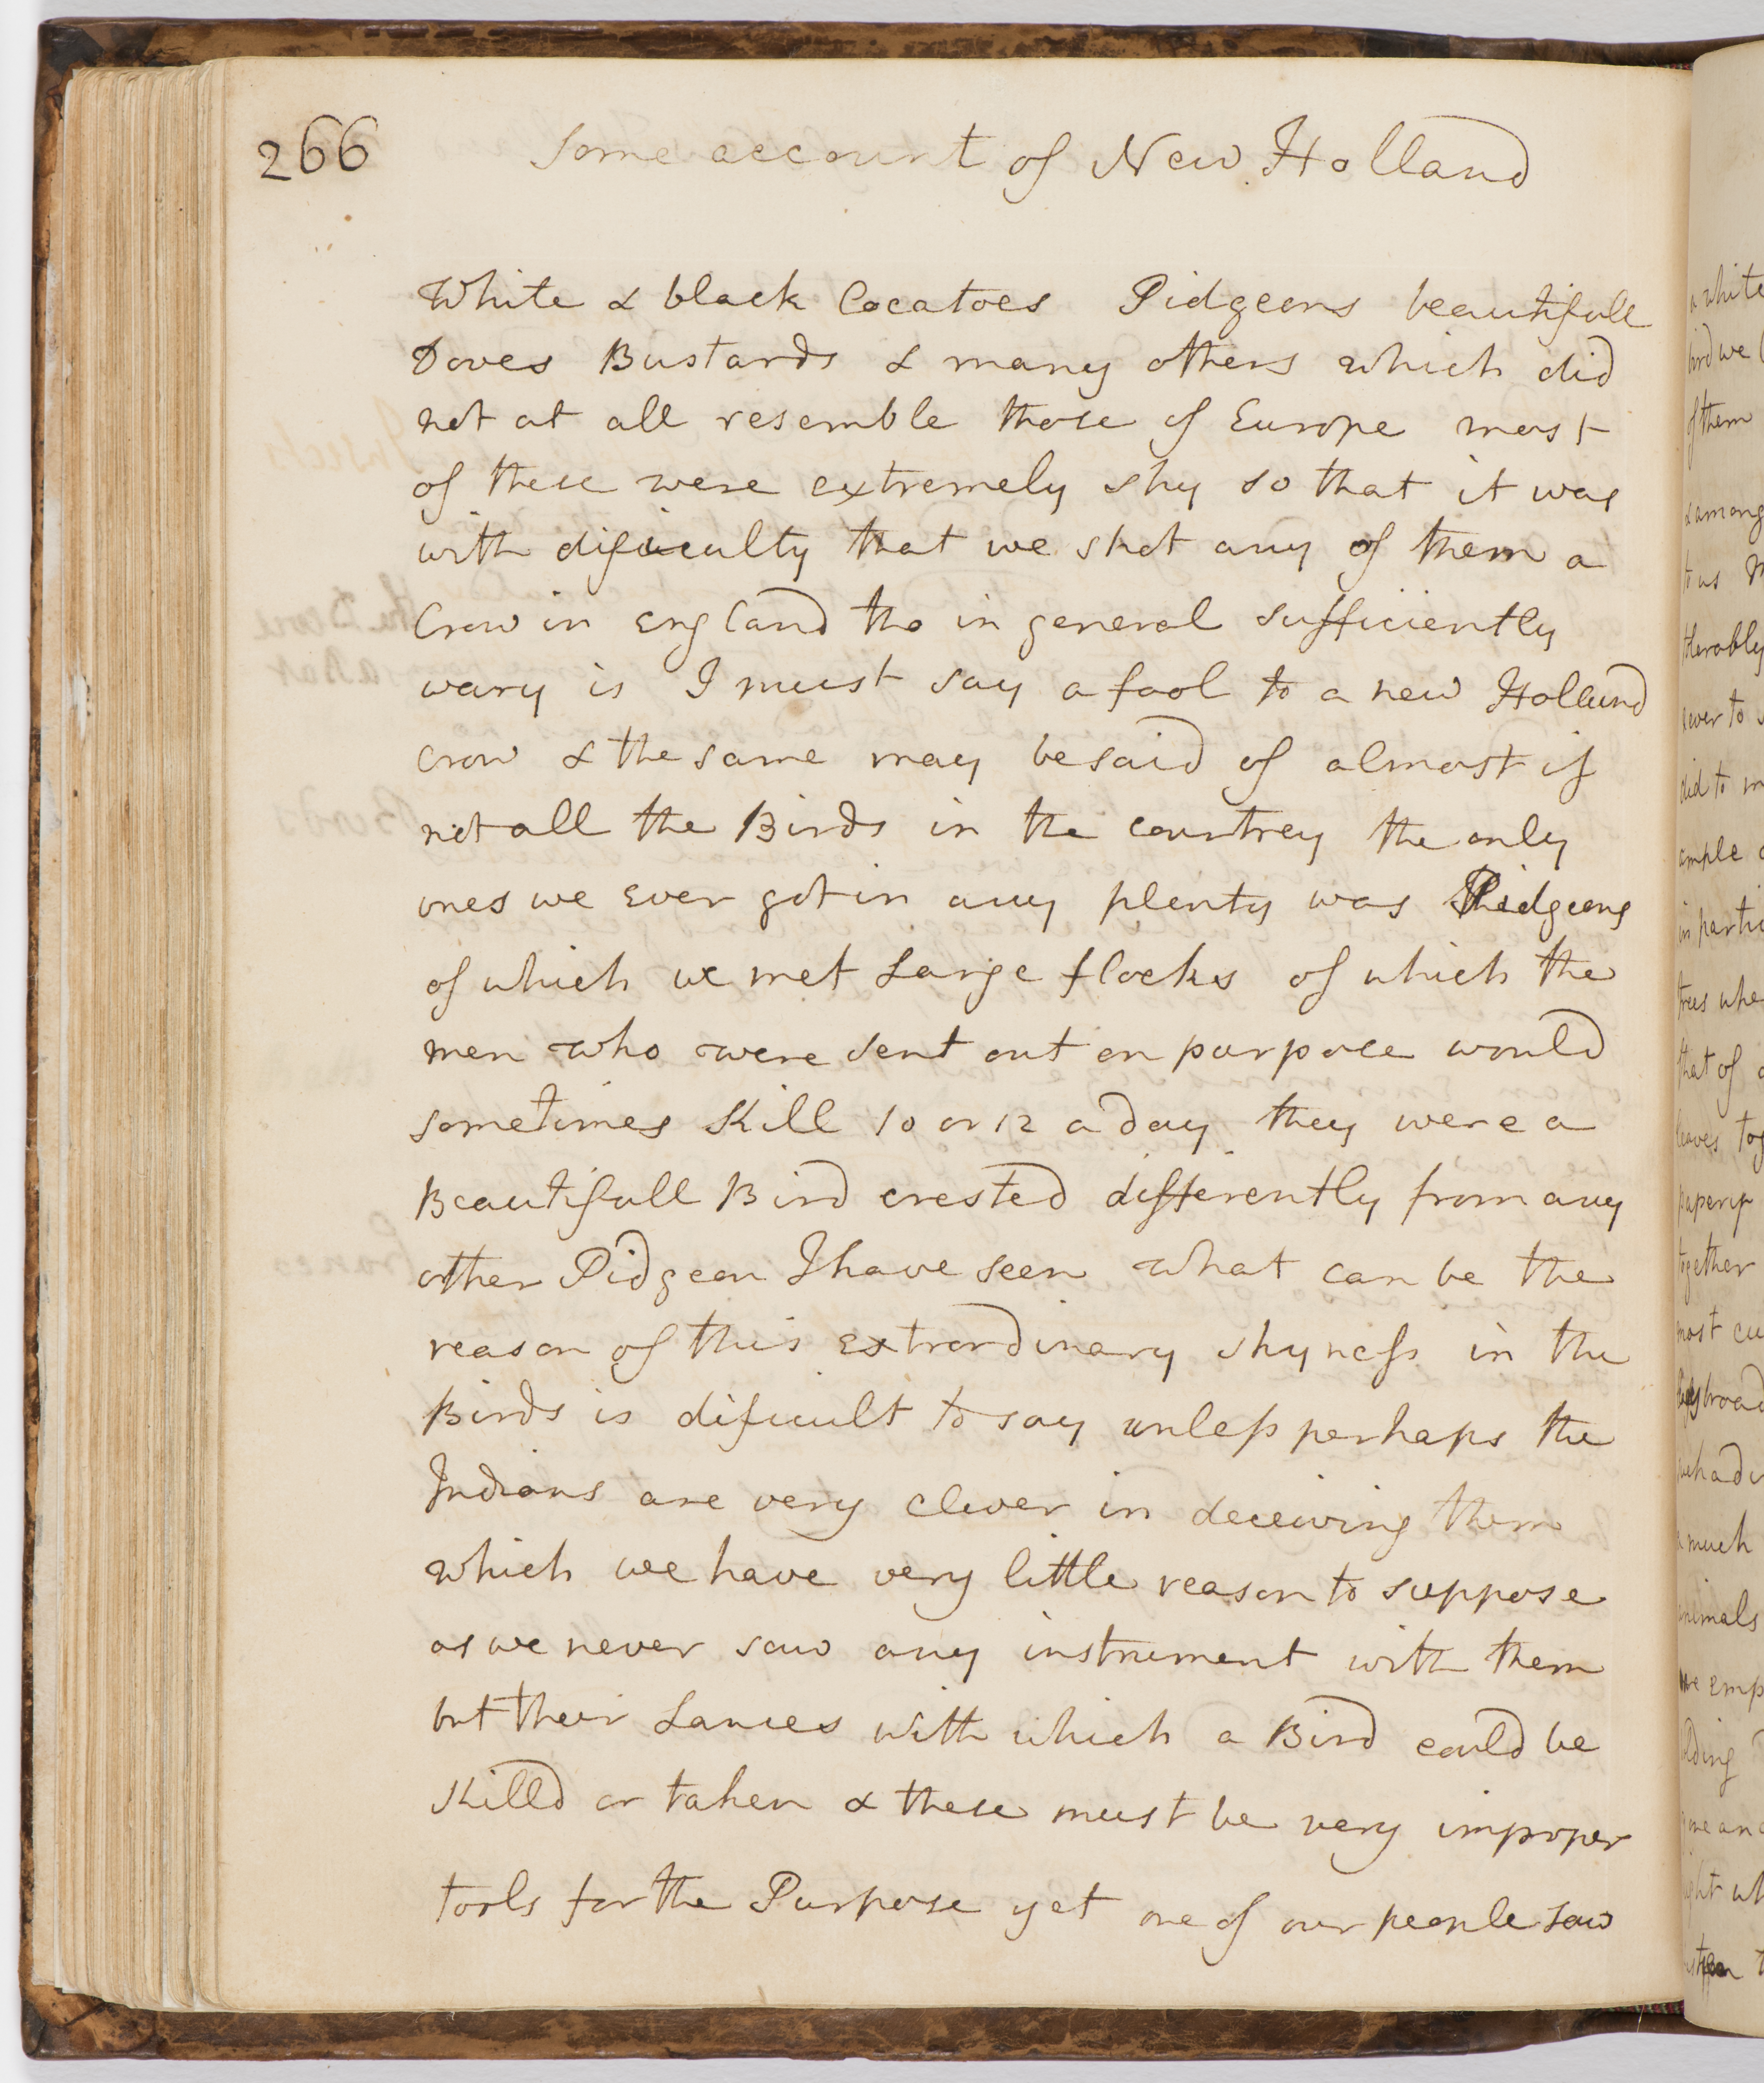 266
Some account of New Holland
White & black Cocatoes Pidgeons beautifull
Doves Bustards & many others which did
not at all resemble those of Europe most
of these were extremely shy so that it was
with dificulty that we shot any of them a
Crow in England tho in general sufficiently
wary is I must say a fool to a new Holland
crow & the same may be said of almost if
not all the Birds in the countrey the only
ones we ever got in any plenty was Pidgeons
of which we met Large flocks of which the
men who were sent out on purpose would
sometimes Kill 10 or 12 a day they were a
Beautifull Bird crested differently from any
other Pidgeon I have seen what can be the
reason of this extrordinary shyness in the
Birds is dificult to say unless perhaps the
Indians are very clever in deceiving them
which we have very little reason to suppose
as we never saw any instrument with them
but their Lances with which a Bird could be
Killd or taken & these must be very improper
tools for the Purpose yet one of our people saw
a white
bird we
of them
& among
to us
tolerably
ever to
did to
ample
in partic
trees whe
that of
leaves tog
together
most cu
broad
we had
much
animals
emp